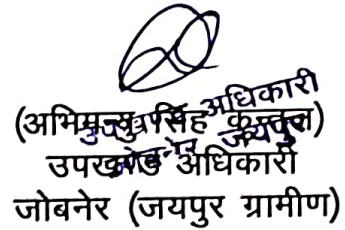 (अभिमन्यु सिंह कुन्तल)
उपखण्ड अधिकारी
जोबनेर (जयपुर ग्रामीण)
अधिकारी
जयपुर